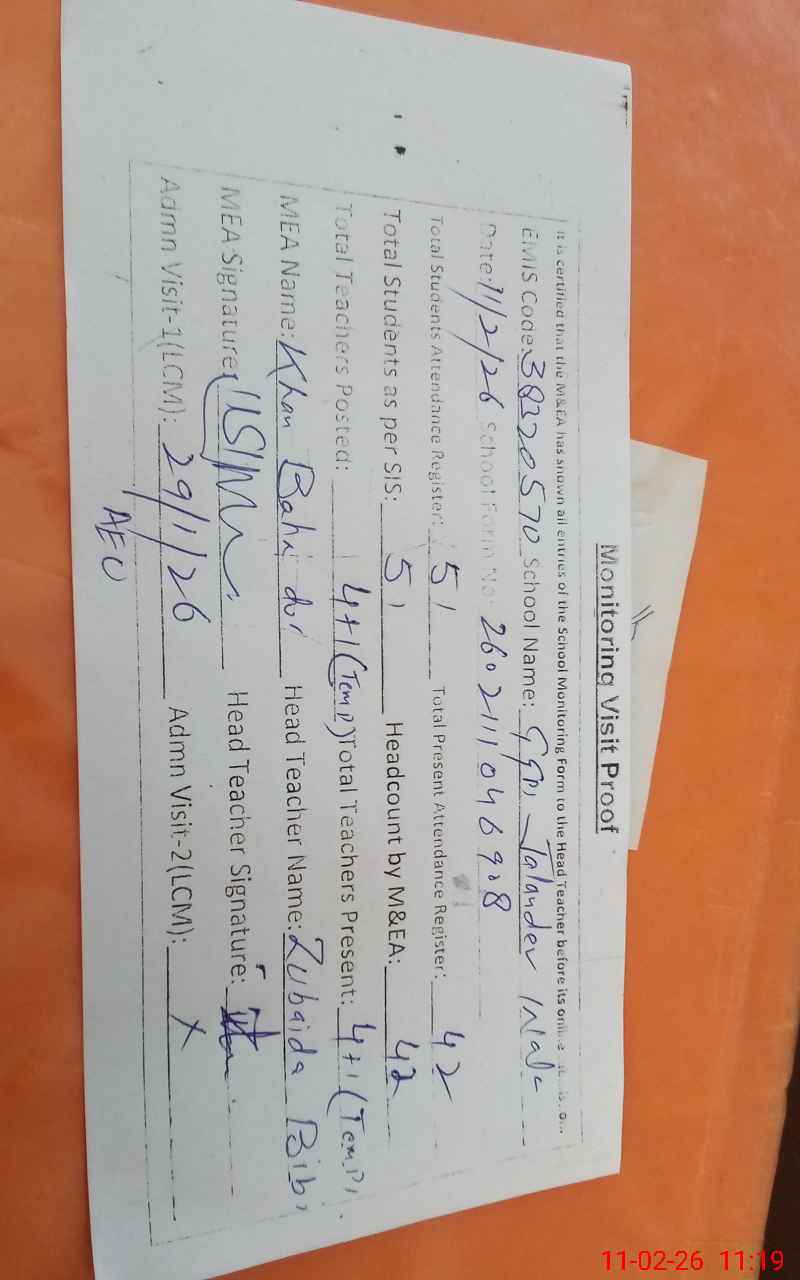 Monitoring Visit Proof
It is certified that the M&EA has shown all entries of the School Monitoring Form to the Head Teacher before its online
EMIS Code: 38320570 School Name: GGPS Jalander
Date: 11/2/26 School Form No: 2602111046908
Total Students Attendance Register: 51 Total Present Attendance Register: 42
Total Students as per SIS: 51 Headcount by M&EA: 42
Total Teachers Posted: 4+1(Temp) Total Teachers Present: 4+1(Temp)
MEA Name: Khan Bahadur Head Teacher Name: Zubaida Bibi
MEA Signature: Head Teacher Signature:
Admn Visit-1(LCM): 29/1/26 Admn Visit-2(LCM): X
AEO
11-02-26 11:19